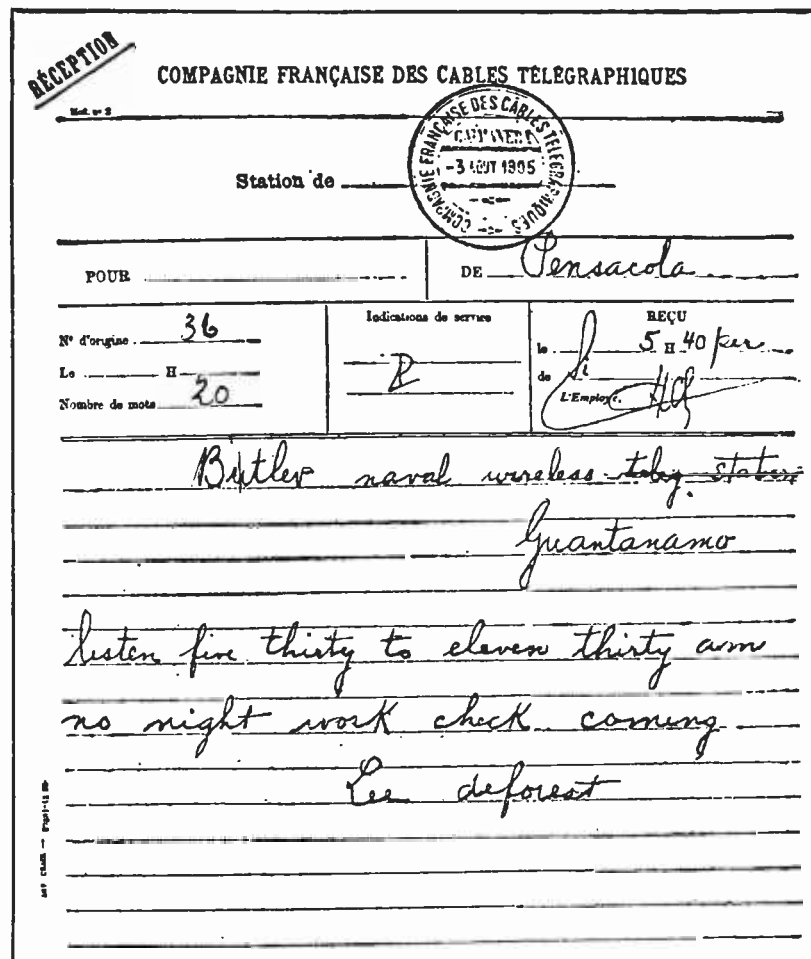 RÉCEPTION
COMPAGNIE FRANÇAISE DES CABLES TÉLÉGRAPHIQUES
Mod. nº 2
COMPAGNIE FRANÇAISE DES CÂBLES TÉLÉGRAPHIQUES
-3 AOUT 1905
Station de
POUR
DE Pensacola
Nº d'origine 36
Le H
Nombre de mots 20
Indications de service
REÇU
le 5 H 40
de
L'Employé.
Butler naval wireless teleg. station
Guantanamo
listen five thirty to eleven thirty am
no night work check coming
Lee deforest